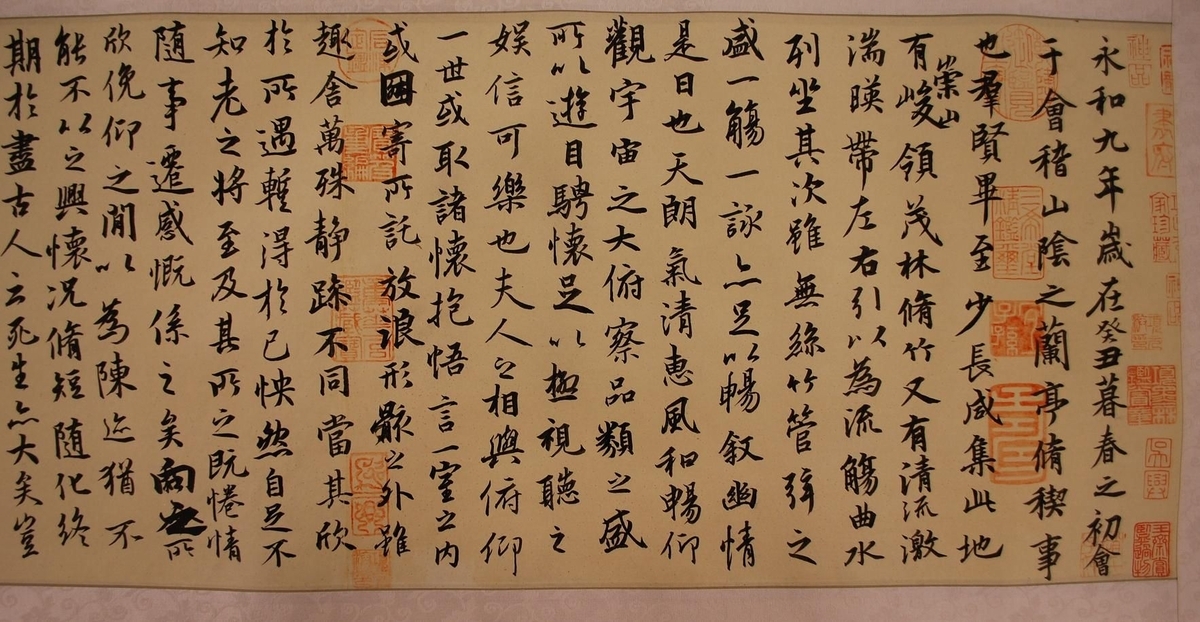 永和九年歲在癸丑暮春之初會
于會稽山陰之蘭亭脩稧事
也羣賢畢至少長咸集此地
有崇山峻領茂林脩竹又有清流激
湍暎帶左右引以為流觴曲水
列坐其次雖無絲竹管弦之
盛一觴一詠亦足以暢叙幽情
是日也天朗氣清惠風和暢仰
觀宇宙之大俯察品類之盛
所以遊目騁懷足以極視聽之
娛信可樂也夫人之相與俯仰
一世或取諸懷抱悟言一室之內
或因寄所託放浪形骸之外雖
趣舍萬殊靜躁不同當其欣
於所遇蹔得於己怏然自足不
知老之將至及其所之既惓情
隨事遷感慨係之矣向之所
欣俛仰之閒以為陳迹猶不
能不以之興懷況脩短隨化終
期於盡古人云死生亦大矣豈